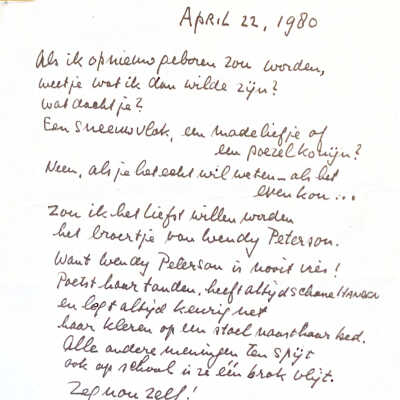 APRIL 22, 1980
Als ik opnieuw geboren zou worden,
weet je wat ik dan wilde zijn?
wat dacht je?
Een sneeuwvlok, een madeliefje of
een poezel konijn?
Neen, als je het echt wil weten — als het
even kon...
Zou ik het liefst willen worden
het broertje van Wendy Peterson.
Want Wendy Peterson is nooit vies!
Poetst haar tanden, heeft altijd schone HANDEN
en legt altijd keurig net
haar kleren op een stoel naast haar bed.
Alle andere meningen ten spijt
ook op school is ze één brok vlijt.
Zeg nou zelf!